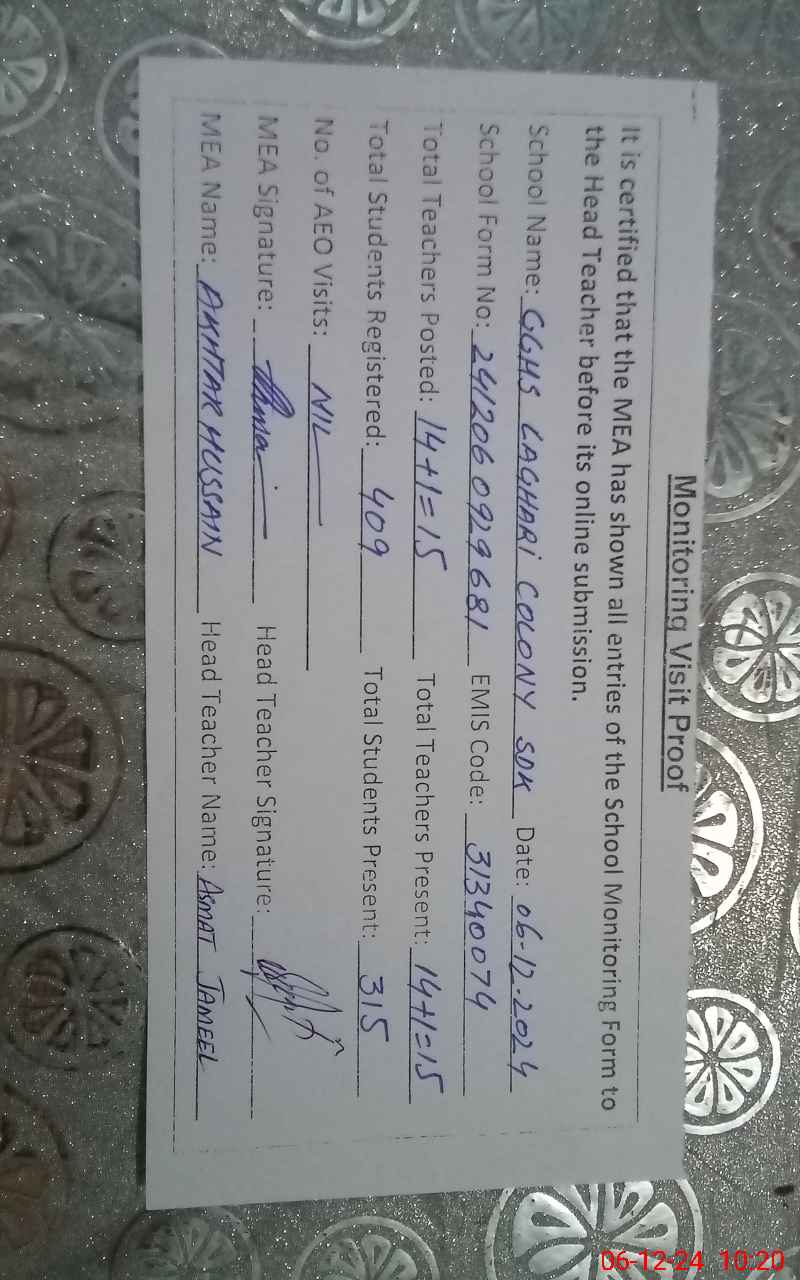 Monitoring Visit Proof
It is certified that the MEA has shown all entries of the School Monitoring Form to
the Head Teacher before its online submission.
School Name: GGHS LAGHARI COLONY SDK Date: 06-12-2024
School Form No: 2412060929681 EMIS Code: 31340074
Total Teachers Posted: 14+1=15 Total Teachers Present: 14+1=15
Total Students Registered: 409 Total Students Present: 315
No. of AEO Visits: NIL
MEA Signature: Head Teacher Signature:
MEA Name: AKHTAR HUSSAIN Head Teacher Name: ASMAT JAMEEL
06-12-24 10:20